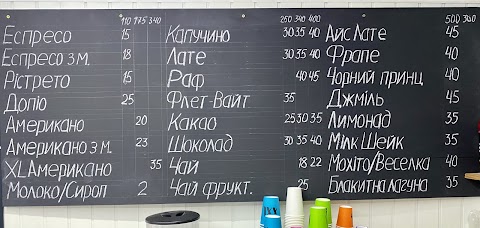 110 175 340
Еспресо 15
Еспресо з м. 18
Рістрето 15
Допіо 25
Американо 20
Американо з м. 23
XL Американо 35
Молоко/Сироп 2
250 340 400
Капучино 30 35 40
Лате 30 35 40
Раф 40 45
Флет-Вайт 35
Какао 25 30 35
Шоколад 30 35 40
Чай 18 22
Чай фрукт. 25
500
Айс Лате 45
Фрапе 40
Чорний принц 40
Джміль 45
Лимонад 35
Мілк Шейк 35
Мохіто/Веселка 40
Блакитна лагуна 35